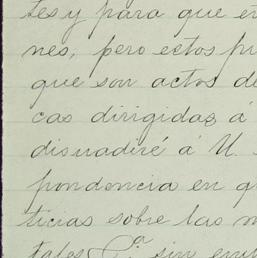 tes y para que en
nes, pero estos pu
que son actos de
cas dirigidas á
disuadiré á U.
pondencia en q
ticias sobre las m
tales sin em